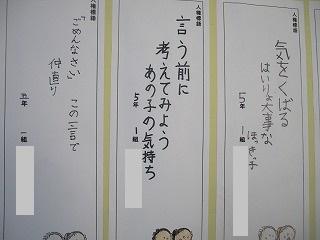 人権標語
気をくばる
はいりょ大事な
ほっきっ子
5年 1組
人権標語
言う前に
考えてみよう
あの子の気持ち
5年 1組
人権標語
「ごめんなさい」 この一言で
仲直り
五年 一組